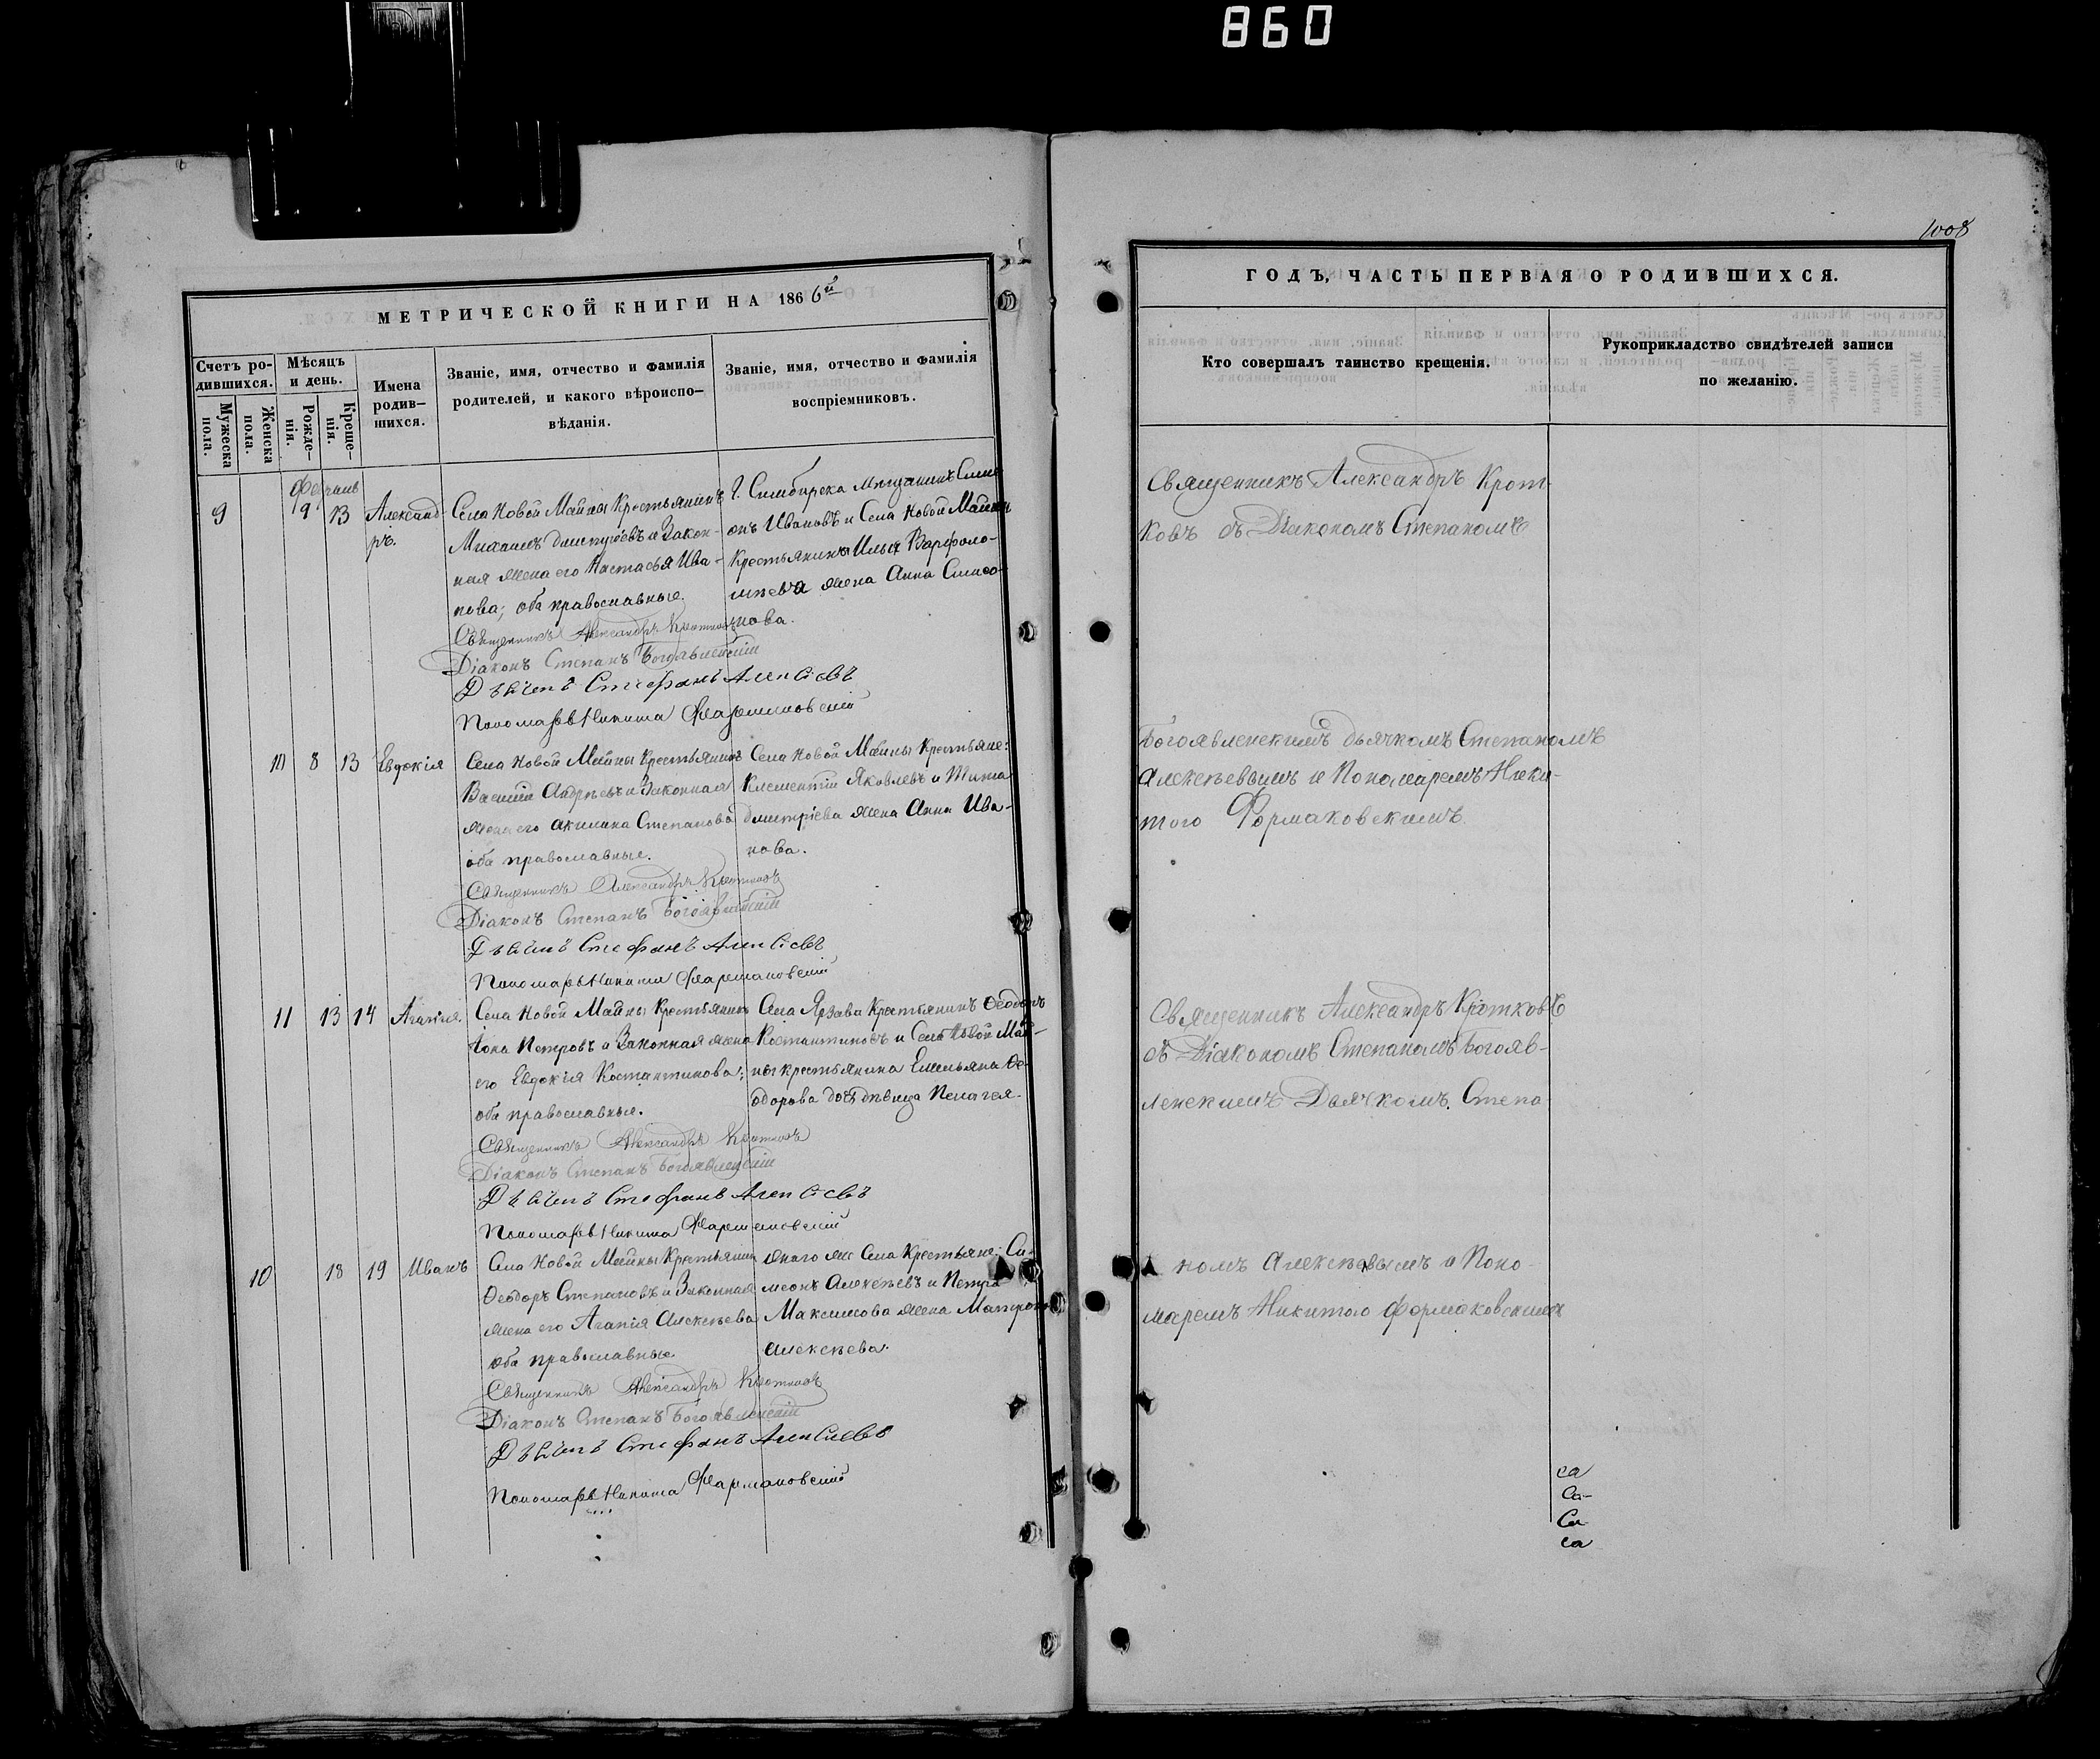 860
1008
МЕТРИЧЕСКОЙ КНИГИ НА 1866й
Счетъ ро-
дившихся.
Мужеска
пола.
Женска
пола.
Мѣсяцъ
и день.
Рожде-
нія.
Креще-
нія.
Имена
родив-
шихся.
Званіе, имя, отчество и фамилія
родителей, и какого вѣроиспо-
вѣданія.
Званіе, имя, отчество и фамилія
воспріемниковъ.
9
9
13
Александ-
ръ.
Села Новой Майны Крестьянинъ
Михаилъ Дмитріевъ и Закон-
ная жена его Настасья Ива-
нова; оба православные.
Г. Симбирска Мѣщанинъ Симе-
онъ Ивановъ и Села Новой Майны
Крестьянина Ильи Варфоло-
мѣева жена Анна Симео-
нова.
Священникъ Александръ Кротковъ
Діаконъ Степанъ Богоявленскій
Дьячекъ Стефанъ Алексѣевъ
Пономарь Никита Фармаковскій
10
8
13
Евдокія
Села Новой Майны Крестьянинъ
Василій Андрѣевъ и Законная
жена его Акилина Степанова
оба православные.
Села Новой Майны Крестьяне:
Клементій Яковлевъ и Тита
Дмитріева жена Анна Ива-
нова.
Священникъ Александръ Кротковъ
Діаконъ Степанъ Богоявленскій
Дьячекъ Стефанъ Алексѣевъ
Пономарь Никита Фармаковскій
11
13
14
Агапія.
Села Новой Майны Крестьянинъ
Іона Петровъ и Законная жена
его Евдокія Костантинова;
оба православные.
Села Крестьянинъ Ѳеодоръ
Костантиновъ и Села Новой Май-
ны крестьянина Емельяна Ѳе-
одорова дочь дѣвица Пелагея.
Священникъ Александръ Кротковъ
Діаконъ Степанъ Богоявленскій
Дьячекъ Стефанъ Алексѣевъ
Пономарь Никита Фармаковскій
10
18
19
Иванъ
Села Новой Майны Крестьянинъ
Ѳеодоръ Степановъ и Законная
жена его Агапія Алексѣева
оба православные
онаго же Села Крестьяне: Си-
меонъ Алексѣевъ и Петра
Максимова жена Матрона
Алексѣева.
Священникъ Александръ Кротковъ
Діаконъ Степанъ Богоявленскій
Дьячекъ Стефанъ Алексѣевъ
Пономарь Никита Фармаковскій
ГОДЪ, ЧАСТЬ ПЕРВАЯ О РОДИВШИХСЯ.
Кто совершалъ таинство крещенія.
Рукоприкладство свидѣтелей записи
по желанію.
Священникъ Александръ Крот-
ковъ съ Діакономъ Степаномъ
Богоявленскимъ дьячкомъ Степаномъ
Алексѣевымъ и Пономаремъ Ники-
тою Формаковскимъ.
Священникъ Александръ Кротковъ
съ Діакономъ Степаномъ Богояв-
ленскимъ Дьячкомъ Степа
номъ Алексѣевымъ и Поно-
маремъ Никитою Формаковскимъ
са
Са-
Са
са